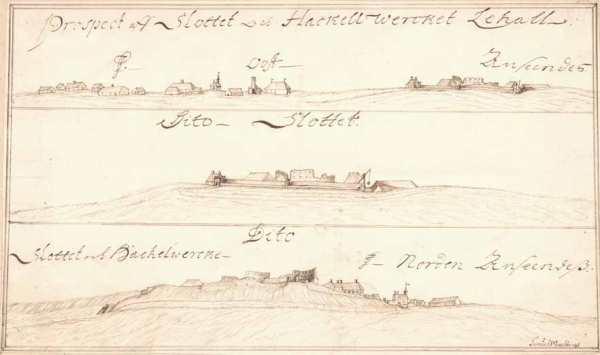 Prospect af Slottet och Hackell wercket Lehall
Ost Anseendes
Dito Slottet
Dito
Slottet och Hackelwercke
Norden Anseendes